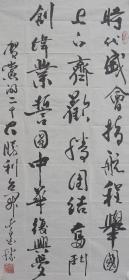 時代盛會指航程舉國
上下齊歡騰團結奮鬥
創偉業誓圓中華復興夢
賀黨的二十大勝利召開